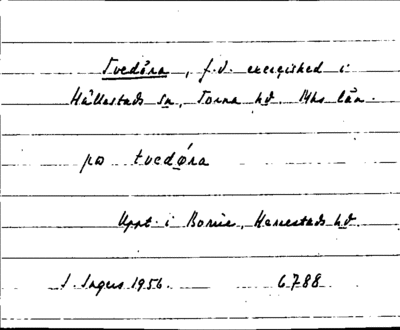 Tvedöra, f.d. exercished i
Hällestads sn, Torna hd. Mhs län.
på tvedø̀ra
Uppt. i Borrie, Herrestads hd.
S. Ingers 1956. 6788